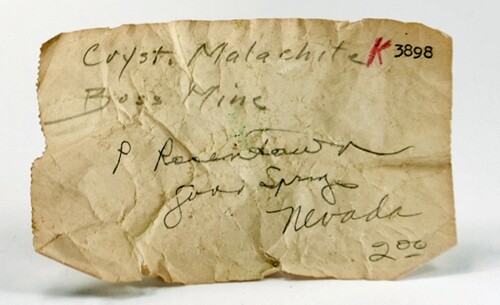 Cryst. Malachite K 3898
Boss Mine
P Rosentawn
Good Springs
Nevada
2.00